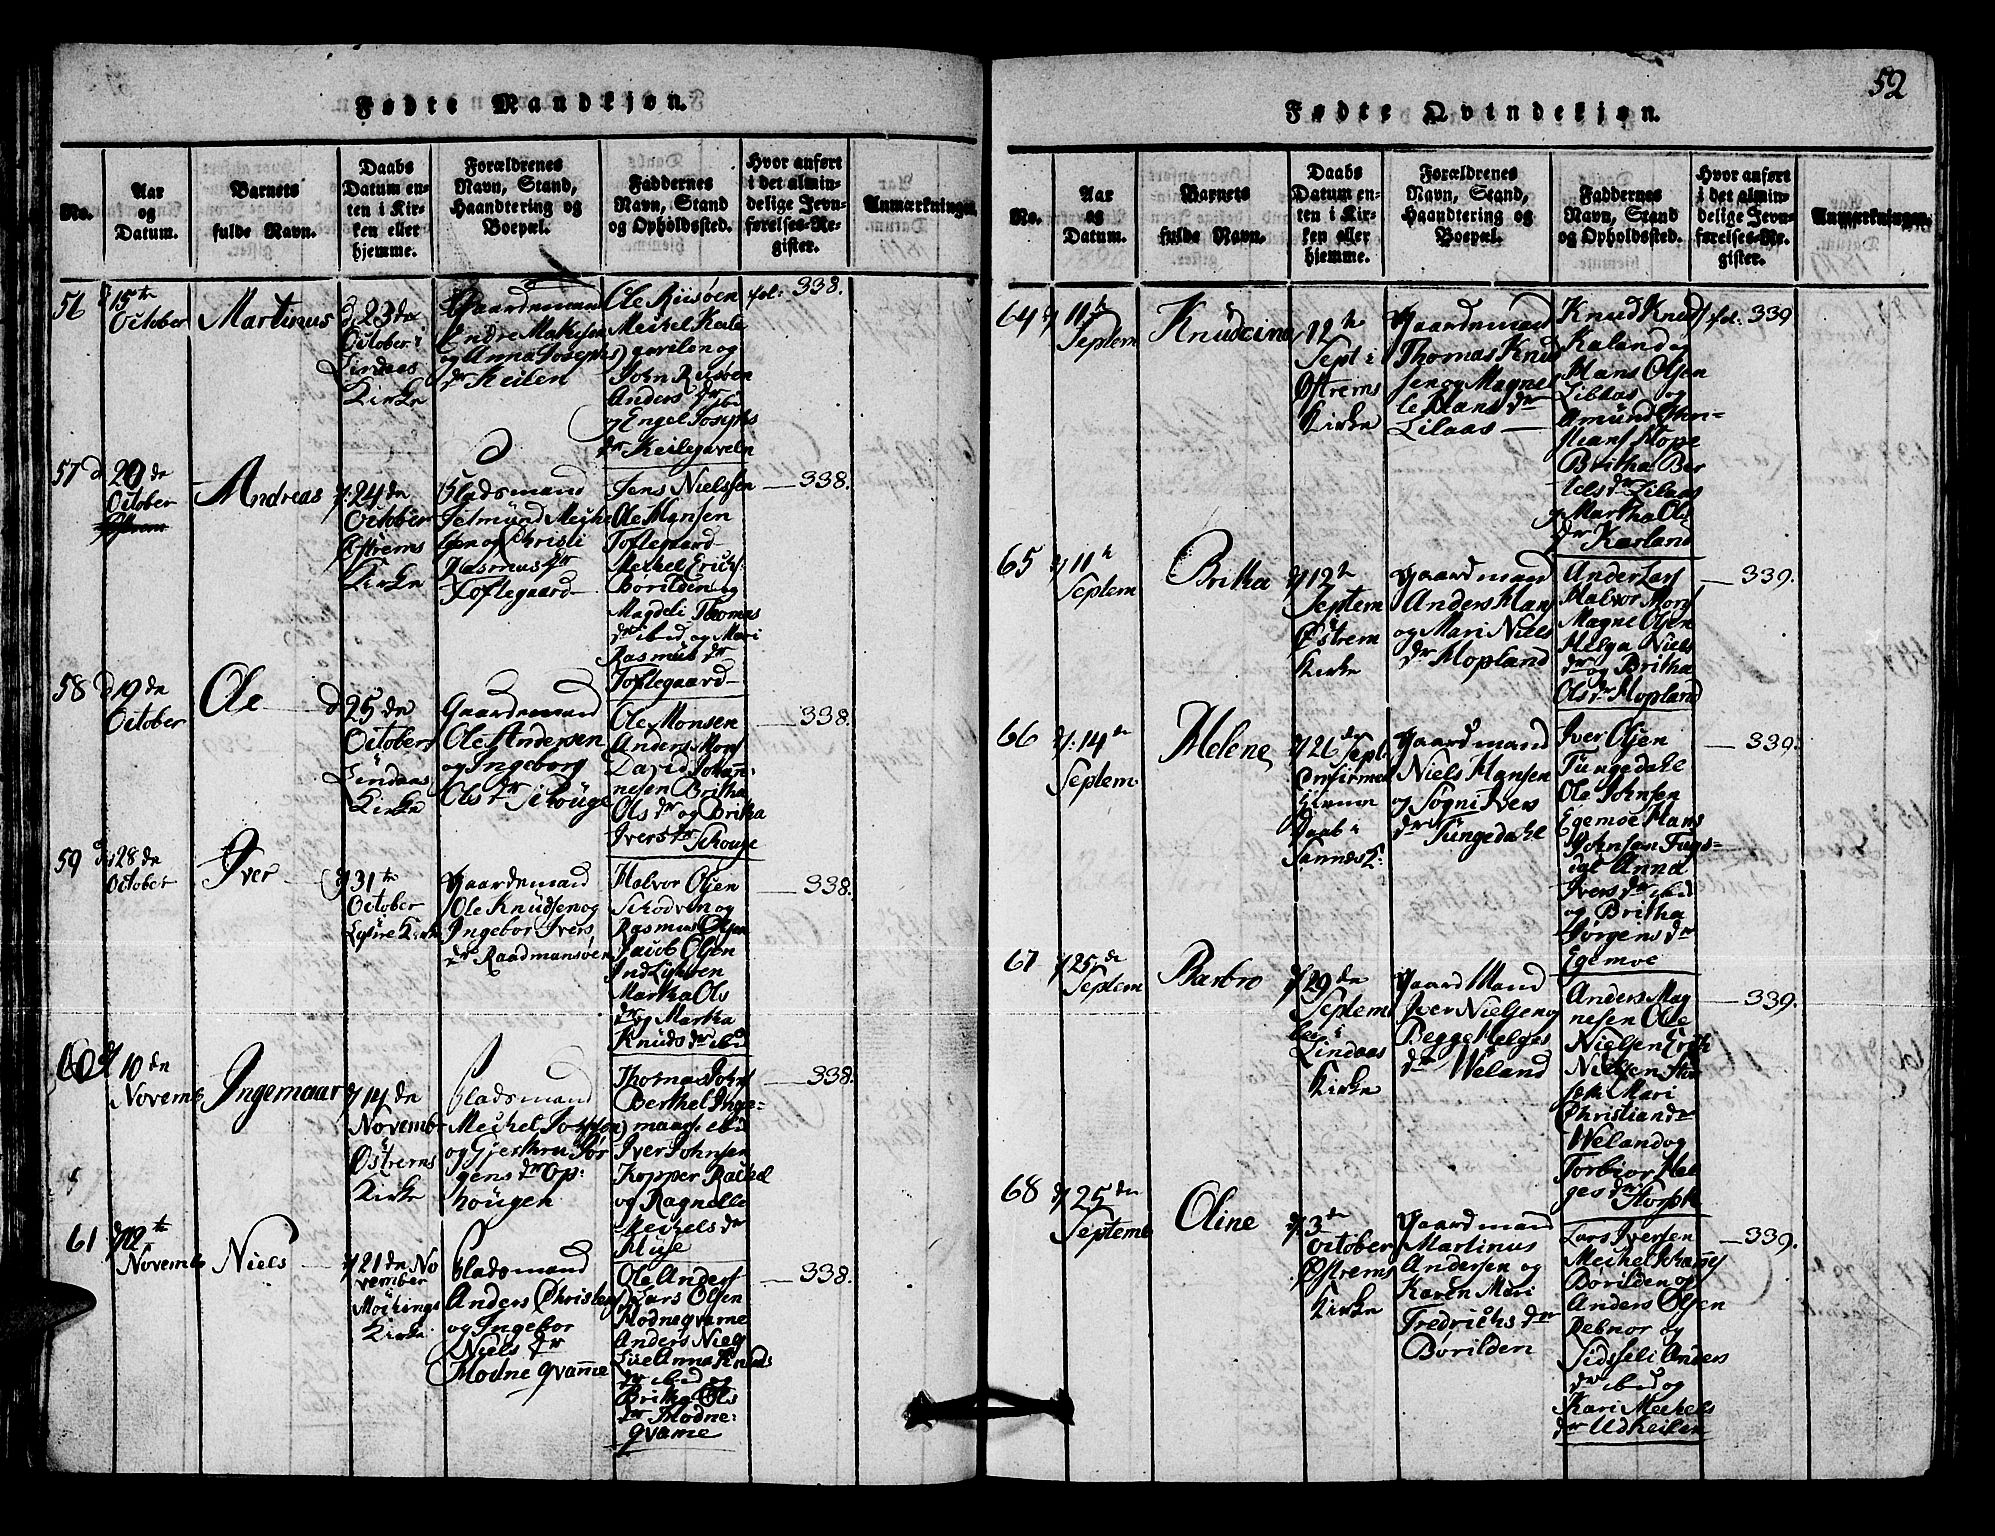 Fødte Mandkjøn.
No.
Aar
og
Datum.
Barnets
fulde Navn.
Daabs
Datum en-
ten i Kir-
ken eller
hjemme.
Forældrenes
Navn, Stand,
Haandtering og
Boepæl.
Faddernes
Navn, Stand
og Opholdssted.
Hvor anført
i det almin-
delige Jevn-
førelses-Re-
gister.
Anmærkninger.
56
15te
October
Martinus
d 23de
October i
Lindaas
Kirke
Gaardemand
Endre
og Anna Josephs
dr Keilen
Ole Riisøen
Meikel Keile
gavilen og
John Riisøen
Anders
Engel Josephs
dr Keilegaveln
fol: 338.
57
20de
October
Andreas
24de
October
Østrems
Kirke
Pladsmand
Meike
sen og Christi
Rasmus dr
Toftegaard
Jens Nielssen
Ole Mansen
Toftegaard
Meikel Erichs
Børilden og
Magdeli Thomas
dr ibid og Mari
Rasmus dr
Toftegaard
338.
58
d 19de
October
Ole
d 25de
October
Lindaas
Kirke
Gaardemand
Ole Andersen
og Ingeborg
Ols dr Schouge
Ole Monsen
Anders Mons
David Johan-
nesen Britha
Ols dr og Britha
Ivers dr Schouge
338.
59
28de
October
Iver
31te
October
Kirke
Gaardemand
Ole Knudsen og
Ingebor Ivers
dr Raadmansøen
Halvor Olsen
Schodven og
Rasmus Olsen
Jacob Olsen
Martha Ols
dr og Martha
Knuds dr ibid
338.
60
10de
Novemb
Ingemaar
14de
Novemb
Østrems
Kirke
Pladsmand
Meikel
og Gjerthru Jør
gens dr Op-
hougen
Thomas Johns
Berthel Inge-
maar ibid
Iver Johnsen
Kopper Rachel
og Ragnelle
Meikels dr
338.
61
12te
Novemb
Niels
21de No
vember
Mochings
Kirke
Pladsmand
Anders Christens
og Ingebor
Niels dr
Modne qvamme
Ole Anders
Lars Olsen
Modneqvame
Anders Niels
Anna Knuds
dr ibid og
Britha Ols
dr Modne-
qvame
338.
52
Fødte Qvindekjøn.
No.
Aar
og
Datum.
Barnets
fulde Navn.
Daabs
Datum en-
ten i Kir-
ken eller
hjemme.
Forældrenes
Navn, Stand,
Haandtering og
Boepæl.
Faddernes
Navn, Stand
og Opholdssted.
Hvor anført
i det almin-
delige Jevn-
førelses-Re-
gister.
Anmærkninger.
64
11te
Septem
Knudcina
12te
Sept i
Østrems
Kirke
Gaardemand
Thomas Knud
sen og Magne
le Hans dr
Lilaas
Knud Knuds
Kaland og
Hans Olsen
Lilaas og
Amund Jhan-
Hope
Britha Ber
tels dr Lilaas
og Martha Ols
dr Karland
fol: 339
65
11te
Septem
Britha
12te
Septem
Østrem
Kirke
Gaardmand
Anders Hans
og Mari Niels
dr Hopland
Ander Lars
Halvor Mons
Magne Olsen
Helga Niels
dr og Britha
Ols dr Hopland
339.
66
14de
Septem
Helene
26de Sept
Confirmer
Daab i
Sannes K:
Gaardmand
Niels Hansen
og Søgni Ivers
dr Tungedahl
Iver Olsen
Tungedahl
Ole Johnsen
Egemoe Hans
Johnsen Fugs-
dal Anna
Ivers dr ibid
og Britha
Jørgens dr
Egemoe
339.
67
25de
Septem
Barbro
29de
Septem
ber i
Lindaas
Kirke
Gaard Mand
Iver Nielsen og
Begge Helges
dr Weland
Anders Mag
nesen Ole
Nielsen Erik
Nielsen
Mari
Christian dr
Weland og
Torbior Hel
ges dr
339.
68
25de
Septemb
Oline
3de
October
Østrems
Kirke
Gaardmand
Martinus
Andersen og
Karen Mari
Fredrichs dr
Børilden
Lars Iversen
Meikel
Børilden og
Anders Olsen
Rebnor og
Sidsseli Anders
dr ibid og
Kari Meikels
dr Udkeilen
339.